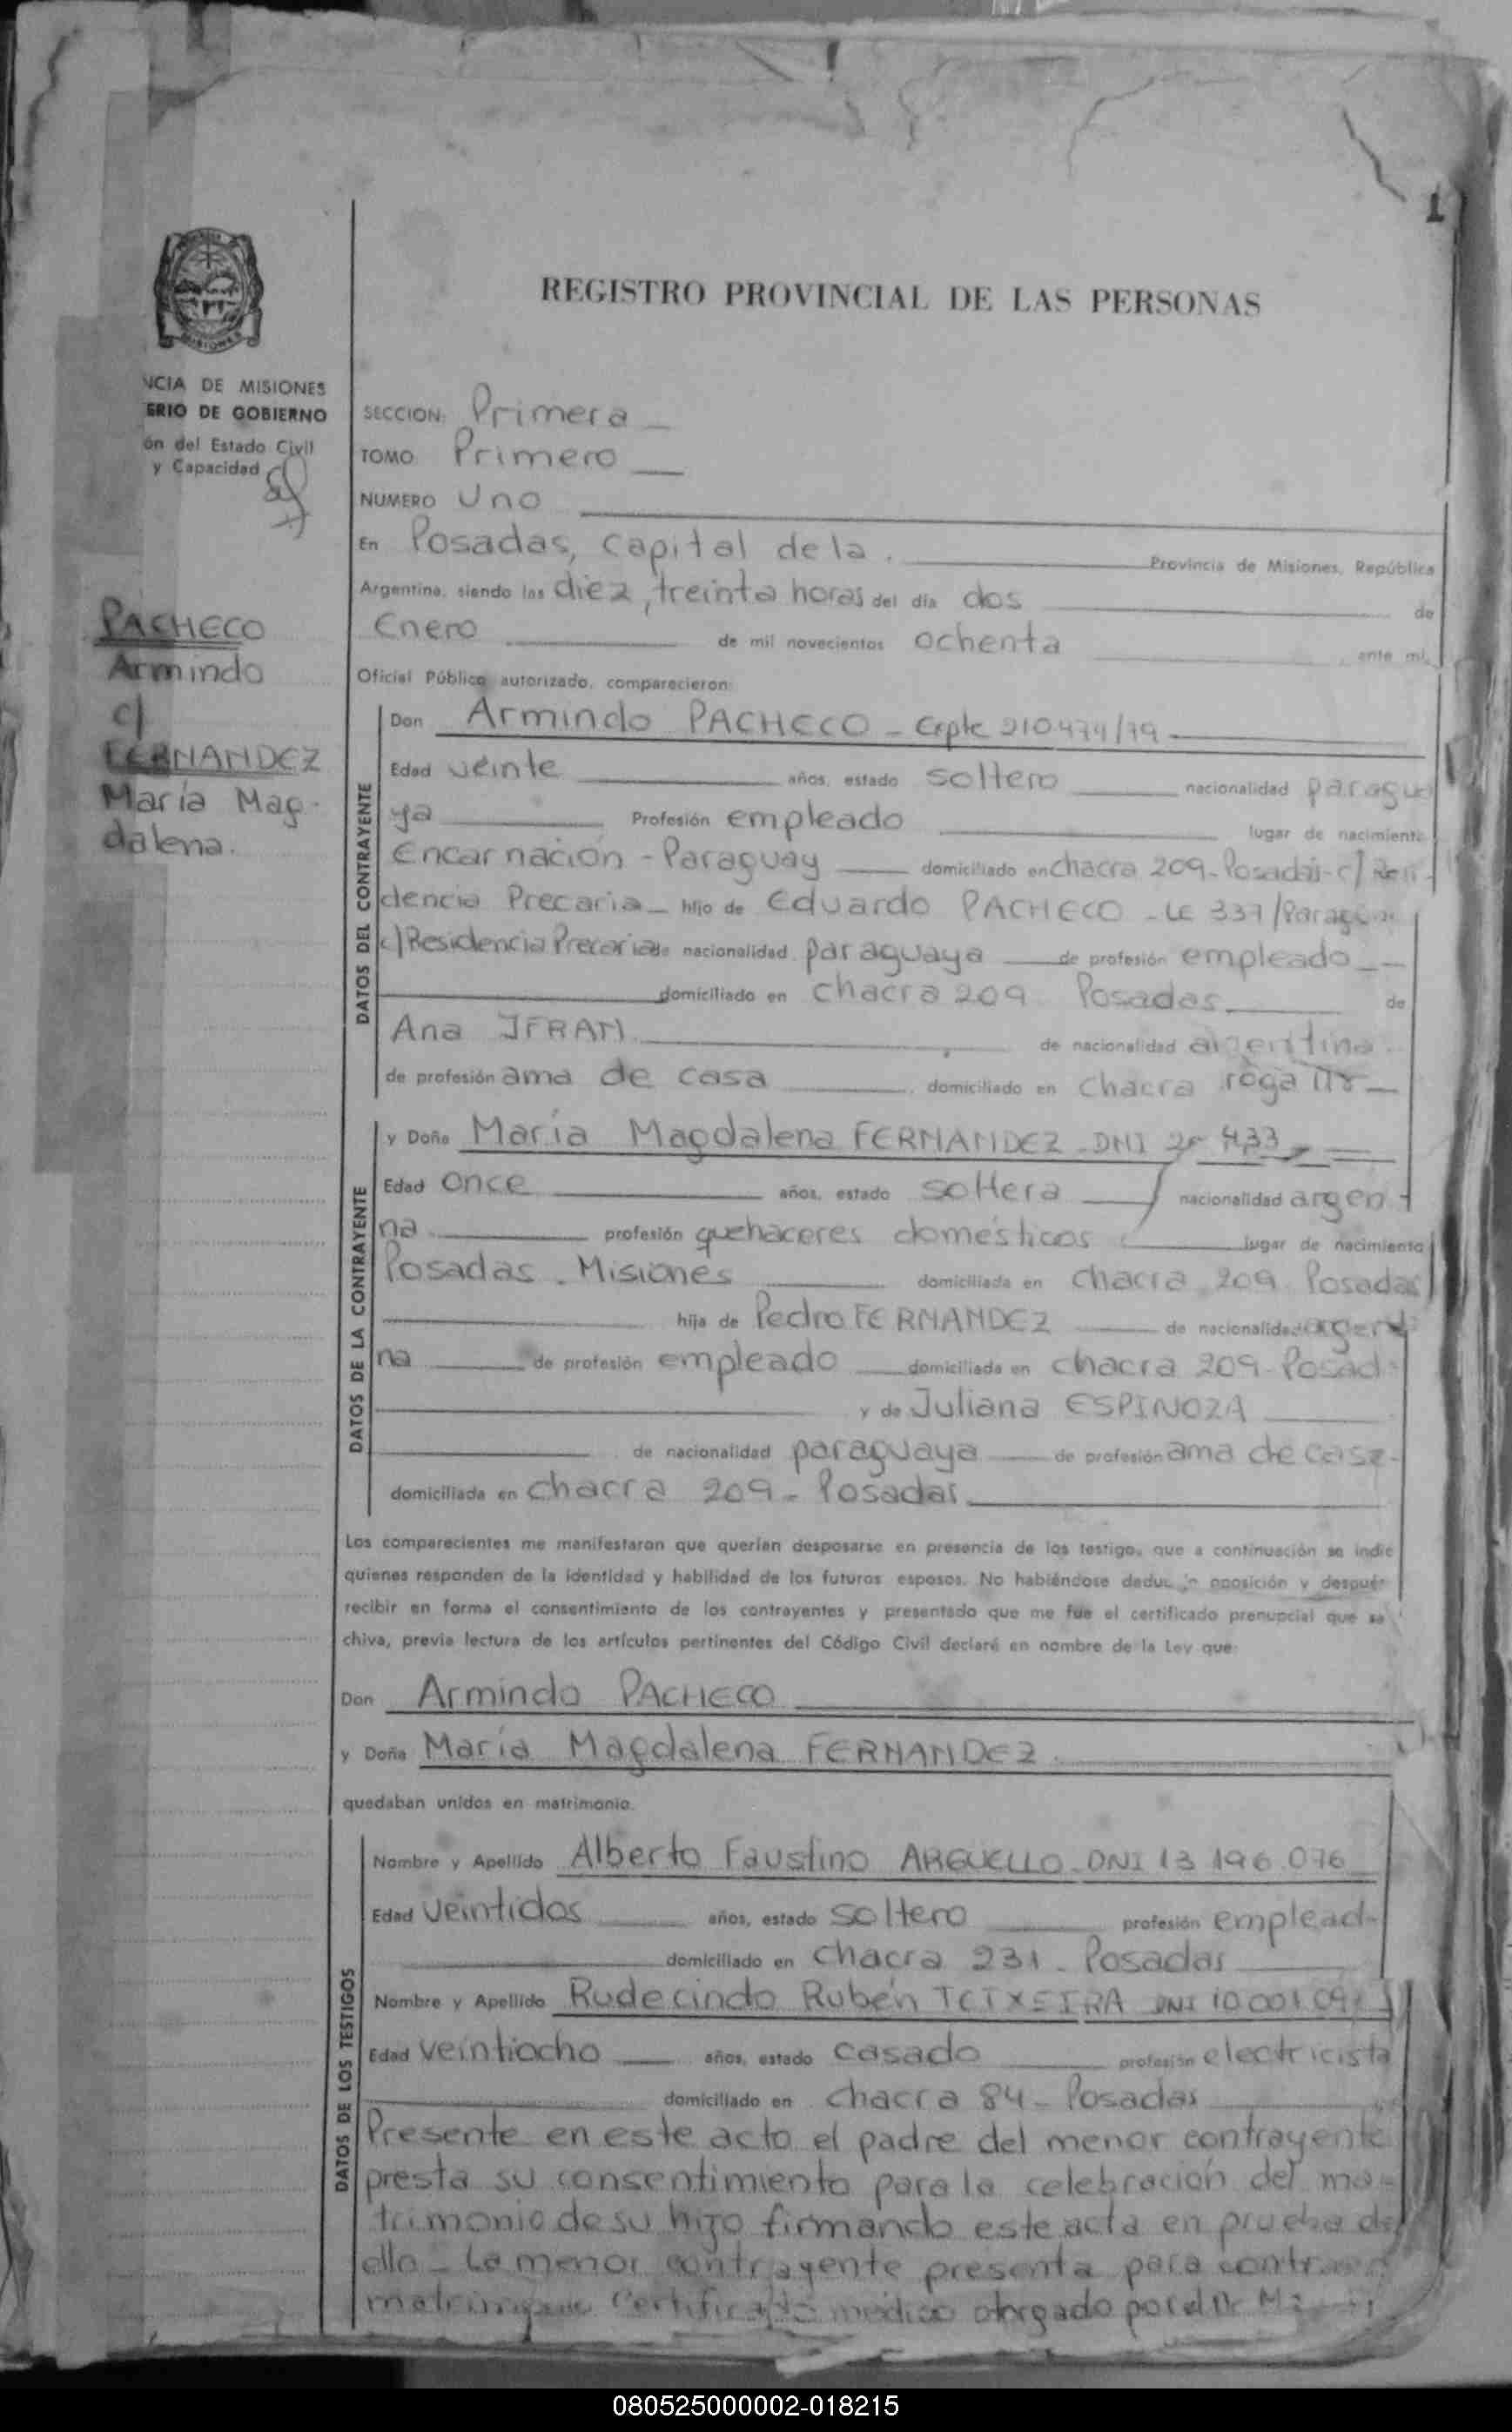 1
REGISTRO PROVINCIAL DE LAS PERSONAS
MISIONES
NCIA DE MISIONES
ERIO DE GOBIERNO
ón del Estado Civil
y Capacidad
PACHECO
Armindo
c/
FERNANDEZ
María Mag-
dalena.
SECCION: Primera
TOMO Primero
NUMERO Uno
En Posadas, capital de la Provincia de Misiones, República
Argentina, siendo las diez, treinta horas del día dos de
Enero de mil novecientos ochenta ante mí,
Oficial Público autorizado, comparecieron:
DATOS DEL CONTRAYENTE
Don Armindo PACHECO - Expte 210474/79
Edad veinte años, estado soltero nacionalidad paragua
ya Profesión empleado lugar de nacimiento
Encarnación - Paraguay domiciliado en chacra 209 - Posadas - c/ Resi
dencia Precaria - hijo de Eduardo PACHECO - LE 337/Paraguay
c/Residencia Precaria de nacionalidad paraguaya de profesión empleado
domiciliado en chacra 209 Posadas de
Ana IFRAN de nacionalidad argentina
de profesión ama de casa, domiciliado en chacra
DATOS DE LA CONTRAYENTE
y Doña María Magdalena FERNANDEZ - DNI 433
Edad once años, estado soltera nacionalidad argen
na profesión quehaceres domésticos lugar de nacimiento
Posadas - Misiones domiciliada en chacra 209 Posadas
hija de Pedro FERNANDEZ de nacionalidad argenti
na de profesión empleado domiciliada en chacra 209 - Posad
y de Juliana ESPINOZA
de nacionalidad paraguaya de profesión ama de casa -
domiciliada en chacra 209 - Posadas
Los comparecientes me manifestaron que querían desposarse en presencia de los testigo, que a continuación se indic
quienes responden de la identidad y habilidad de los futuros esposos. No habiéndose deduc oposición y despué
recibir en forma el consentimiento de los contrayentes y presentado que me fue el certificado prenupcial que se
chiva, previa lectura de los artículos pertinentes del Código Civil declaré en nombre de la Ley que:
Don Armindo PACHECO
y Doña María Magdalena FERNANDEZ
quedaban unidos en matrimonio.
DATOS DE LOS TESTIGOS
Nombre y Apellido Alberto Faustino ARGUELLO - DNI 13 196 076
Edad veintidos años, estado soltero profesión emplead
domiciliado en chacra 231 - Posadas
Nombre y Apellido Rudecindo Rubén TEIXEIRA DNI 10 001 09
Edad veintiocho años, estado casado profesión electricista
domiciliado en chacra 84 - Posadas
Presente en este acto el padre del menor contrayente
presta su consentimiento para la celebración del ma-
trimonio de su hijo firmando este acta en prueba de
ello - La menor contrayente presenta para contraer
matrimonio certificado médico otorgado por el Dr
080525000002-018215